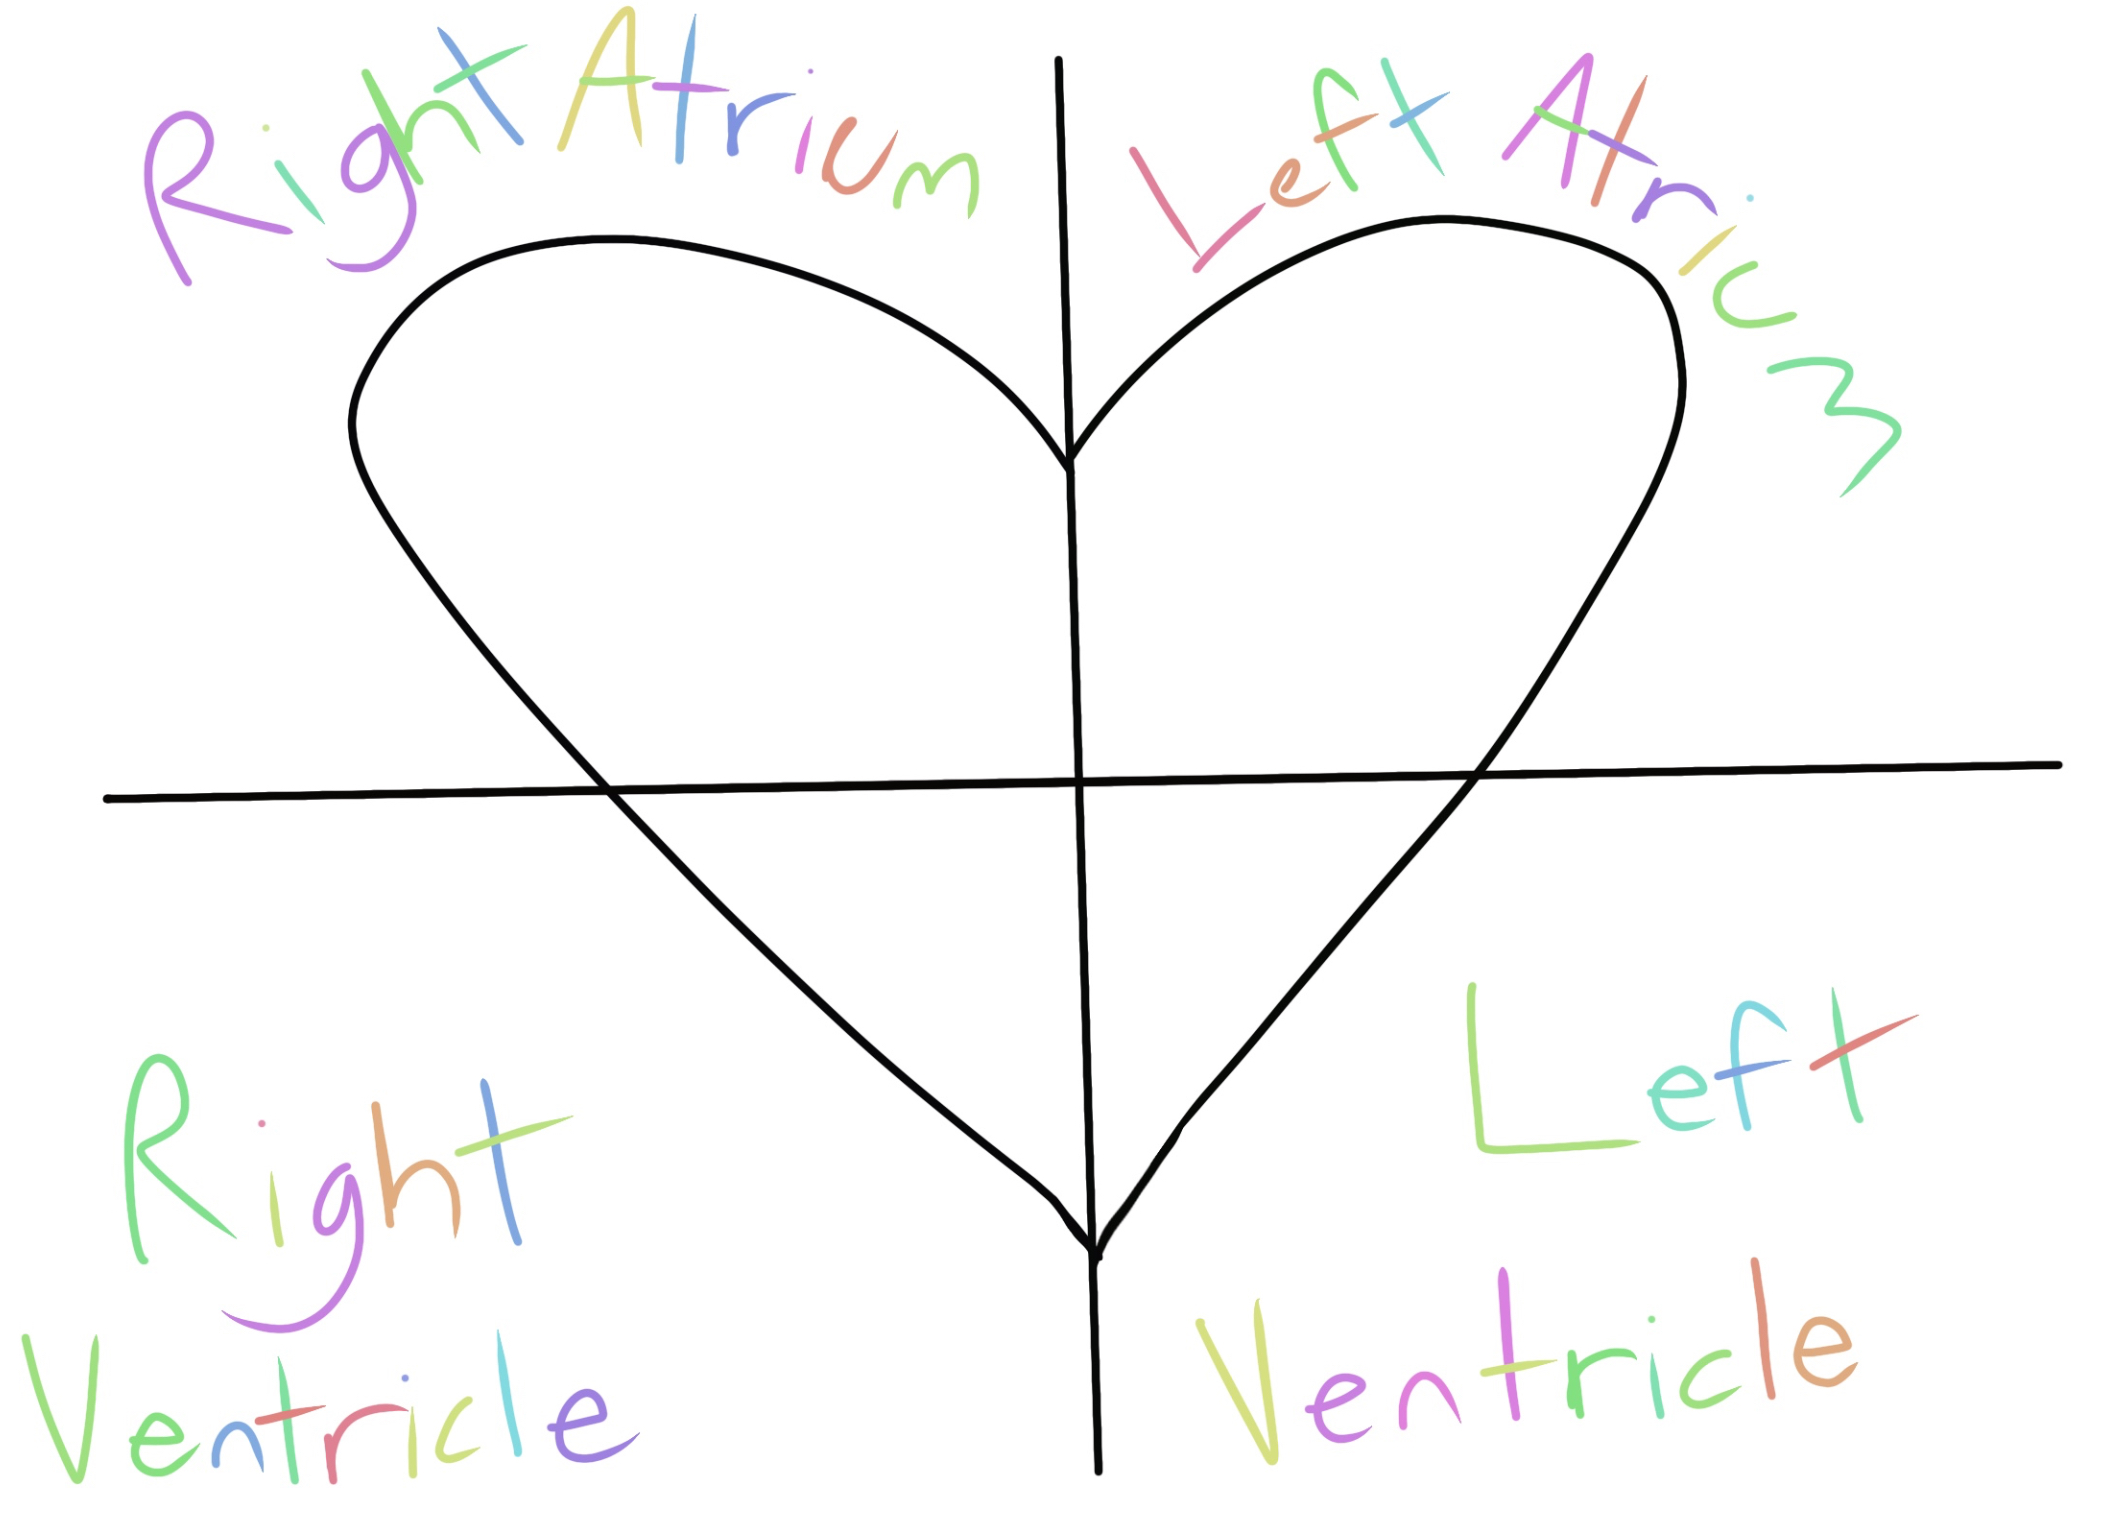 Right Atrium
Left Atrium
Right
Ventricle
Left
Ventricle